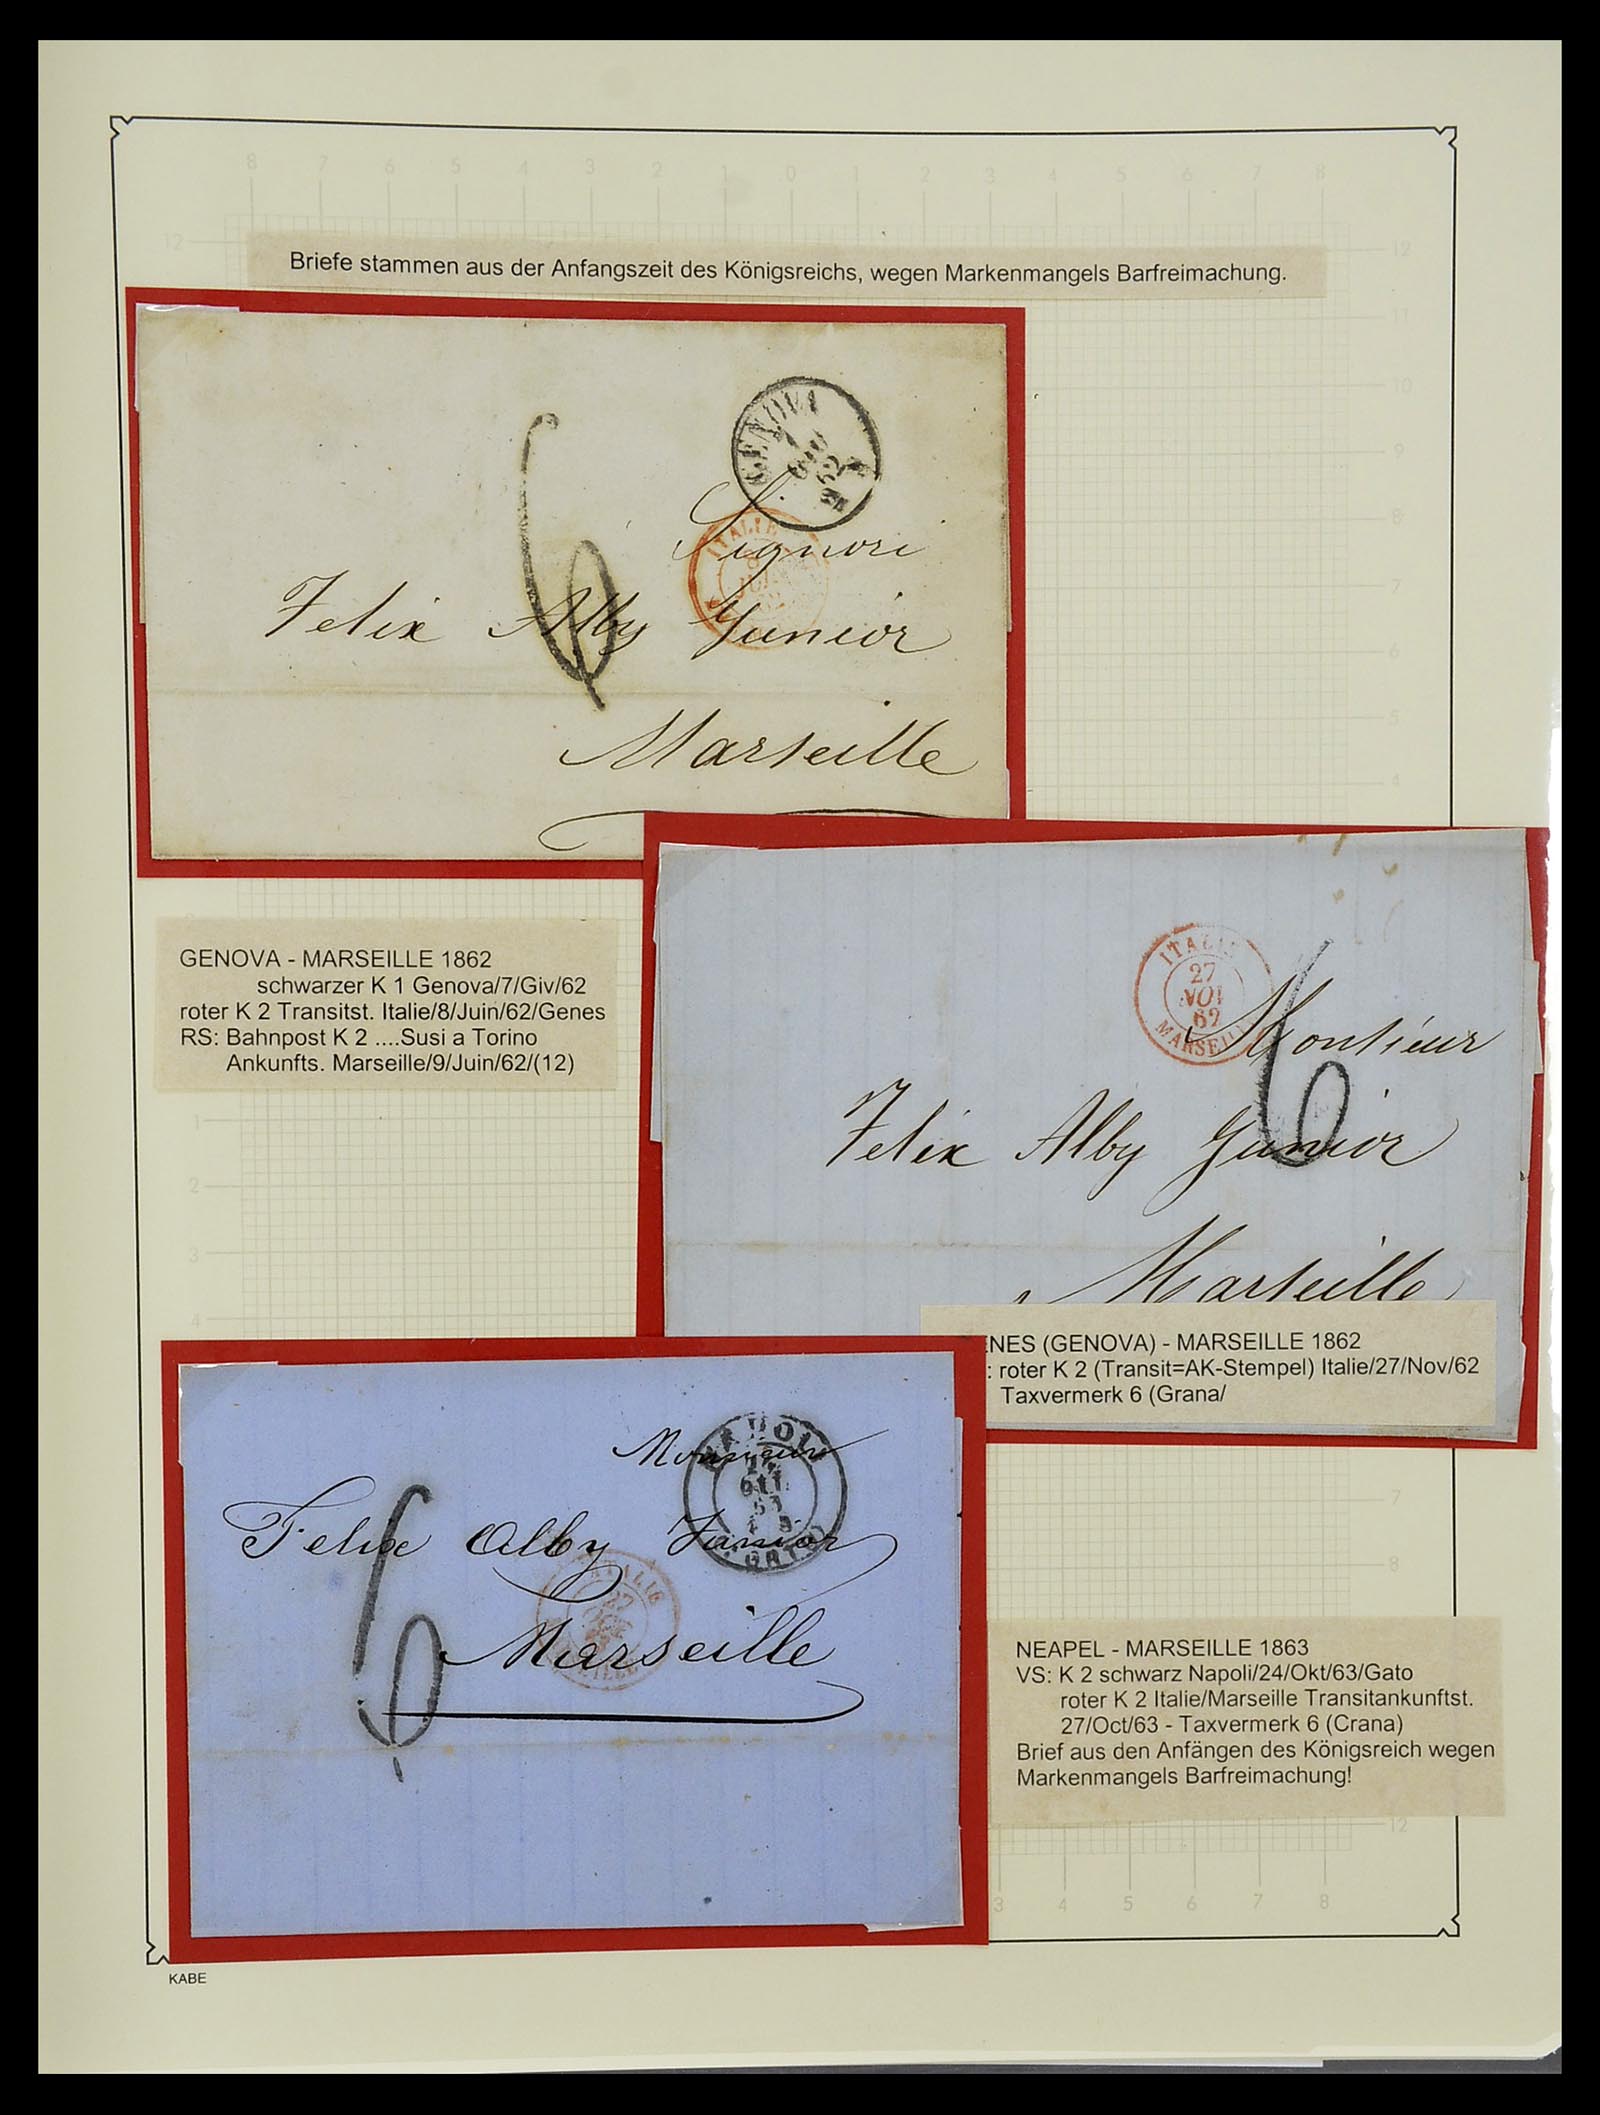 8 7 6 5 4 3 2 1 0 1 2 3 4 5 6 7 8
12 12
Briefe stammen aus der Anfangszeit des Königsreichs, wegen Markenmangels Barfreimachung.
11
10
9
8
7
6
5
4
GENOVA
62
ITALIE
8
6
Signori
Felix Alby Junior
Marseille
GENOVA - MARSEILLE 1862
schwarzer K 1 Genova/7/Giv/62
roter K 2 Transitst. Italie/8/Juin/62/Genes
RS: Bahnpost K 2 ....Susi a Torino
Ankunfts. Marseille/9/Juin/62/(12)
1
2
3
4
ITALIE
27
NOV
62
MARSEILLE
6
Monsieur
Felix Alby Junior
Marseille
ENES (GENOVA) - MARSEILLE 1862
: roter K 2 (Transit=AK-Stempel) Italie/27/Nov/62
Taxvermerk 6 (Grana/
NAPOLI
63
ITALIE
27
6
Monsieur
Felix Alby Junior
Marseille
7
8
NEAPEL - MARSEILLE 1863
VS: K 2 schwarz Napoli/24/Okt/63/Gato
roter K 2 Italie/Marseille Transitankunftst.
27/Oct/63 - Taxvermerk 6 (Crana)
Brief aus den Anfängen des Königsreich wegen
Markenmangels Barfreimachung!
12
3 4 5 6 7 8
KABE